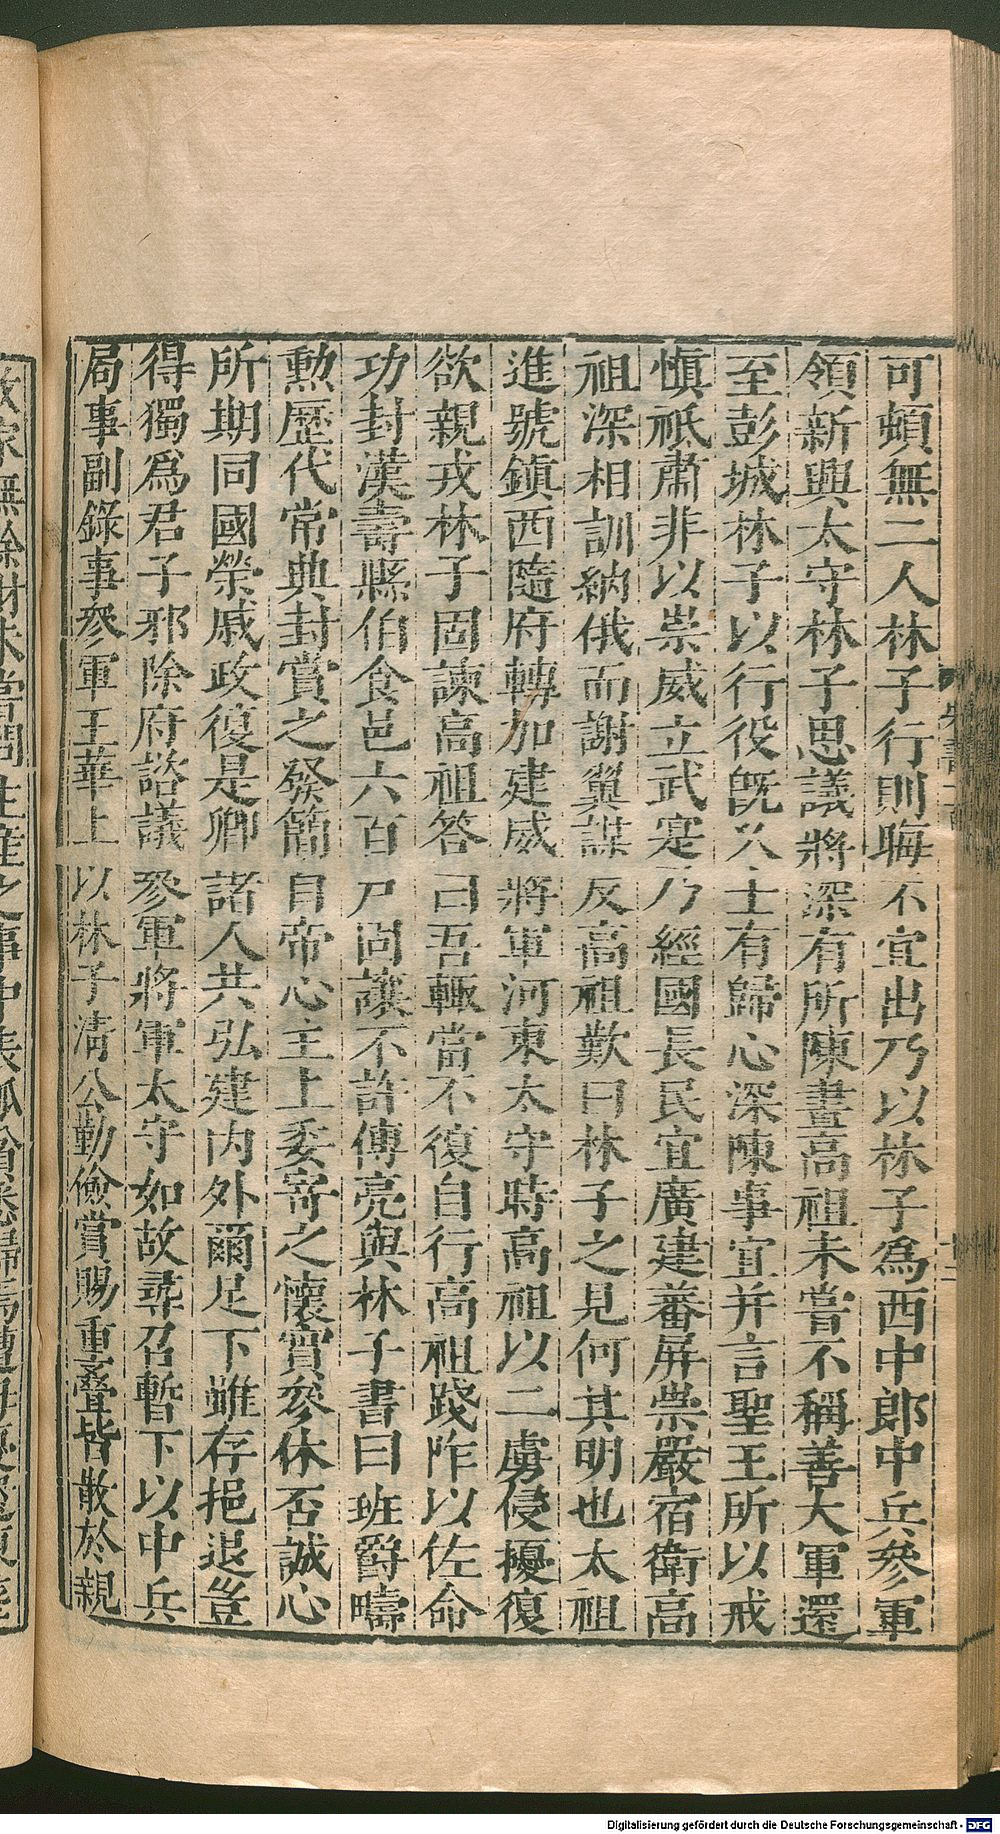 可頓無二人林子行則晦不宜出乃以林子爲西中郎中兵參軍
領新興太守林子思議將深有所陳畫高祖未嘗不稱善大軍還
至彭城林子以行役旣久士有歸心深陳事宜并言聖王所以戒
愼祗肅非以崇威立武寔乃經國長民宜廣建蕃屏崇嚴宿衛高
祖深相訓納俄而謝翼謀反高祖歎曰林子之見何其明也太祖
進號鎮西隨府轉加建威將軍河東太守時高祖以二虜侵擾復
欲親戎林子固諫高祖答曰吾輒當不復自行高祖踐阼以佐命
功封漢壽縣伯食邑六百戸固讓不許傳亮與林子書曰班爵疇
勲歷代常典封賞之發簡自帝心主上委寄之懷實參休否誠心
所期同國榮戚政復是卿諸人共弘建内外爾足下雖存挹退豈
得獨爲君子邪除府諮議參軍將軍太守如故尋召暫下以中兵
局事副錄事參軍王華上以林子清公勤儉賞賜重疊皆散於親
Digitalisierung gefördert durch die Deutsche Forschungsgemeinschaft - DFG